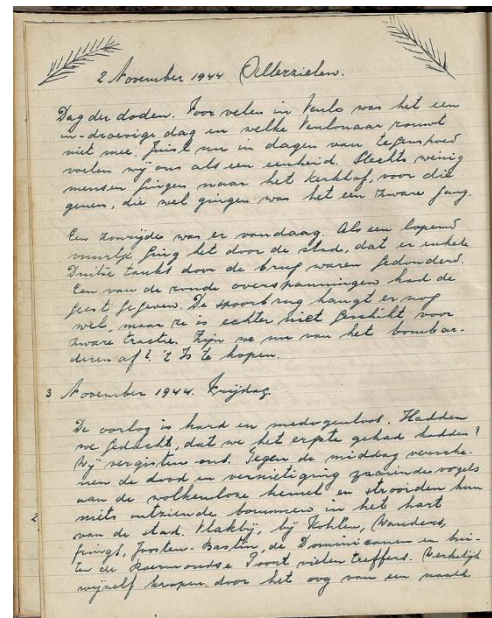 2 November 1944 Allerzielen.
Dag der doden. Voor velen in Venlo was het een
in-droevige dag en welke Venlonaar rouwt
niet mee. Juist nu in dagen van tegenspoed
voelen wij ons als een eenheid. Slechts weinig
mensen gingen naar het kerkhof, voor die
genen, die wel gingen was het een zware gang.
Een was er vandaag. Als een lopend
vuurtje ging het door de stad, dat er enkele
Duitse tanks door de brug waren gedonderd.
Een van de ronde overspanningen had de
geest gegeven. De spoorbrug hangt er nog
wel, maar ze is echter niet geschikt voor
zware tractie. Zijn we nu van het bombar-
deren af? 't Is te hopen.
3 November 1944. Vrijdag
De oorlog is hard en medogenloos. Hadden
we gedacht, dat we het ergste gehad hadden?
Wij vergisten ons. Tegen de middag versche-
nen de dood en vernietiging zaaiende vogels
aan de wolkenloze hemel en strooiden hun
niets ontziende bommen in het hart
van de stad. Vlakbij, bij
Joosten. Bastin, de Dominicanen en bui-
ten de Roermondse Poort vielen treffers. Werkelijk
wijzelf kropen door het oog van een naald
2